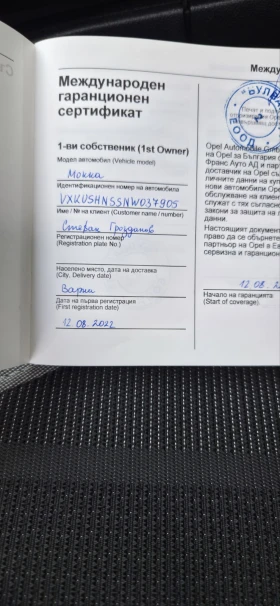 Международен
гаранционен
сертификат
1-ви собственик (1st Owner)
Модел автомобил (Vehicle model)
Мокка
Идентификационен номер на автомобила
VXKUSHNSSNW037905
Име / № на клиент (Customer name / number)
Стефан Грозданов
Регистрационен номер
(Registration plate No.)
Населено място, дата на доставка
(City, Delivery date)
Варна
Дата на първа регистрация
(First registration date)
12.08.2022
Между
Opel Automobile Gmb
на Opel за България с
Франс Ауто АД и парт
доставчик на Opel съ
личните данни на куп
нови автомобили Ope
обслужване на клиен
служат с тях съгласно
закони за защита на
данни.
Настоящият документ
право да се обърнете
партньор на Opel в Ев
сервизна и гаранцион
12.08.2
Начало на гаранцията
(Start of coverage)